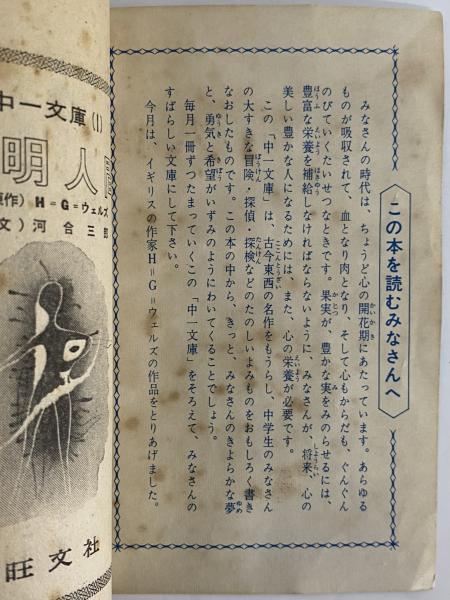 この本を読むみなさんへ
みなさんの時代は、ちょうど心の開花期にあたっています。あらゆる
ものが吸収されて、血となり肉となり、そして心もからだも、ぐんぐん
のびていくたいせつなときです。果実が、豊かな実をみのらせるには、
豊富な栄養を補給しなければならないように、みなさんが、将来、心の
美しい豊かな人になるためには、また、心の栄養が必要です。
この「中一文庫」は、古今東西の名作をもうらし、中学生のみなさん
の大すきな冒険・探偵・探検などのたのしいよみものをおもしろく書き
なおしたものです。この本の中から、きっと、みなさんのきよらかな夢
と、勇気と希望がいずみのようにわいてくることでしょう。
毎月一冊ずつたまっていくこの「中一文庫」をそろえて、みなさんの
すばらしい文庫にして下さい。
今月は、イギリスの作家H=G=ウェルズの作品をとりあげました。
中一文庫(1)
明人
原作) H=G=ウェルズ
文) 河合三郎
旺文社